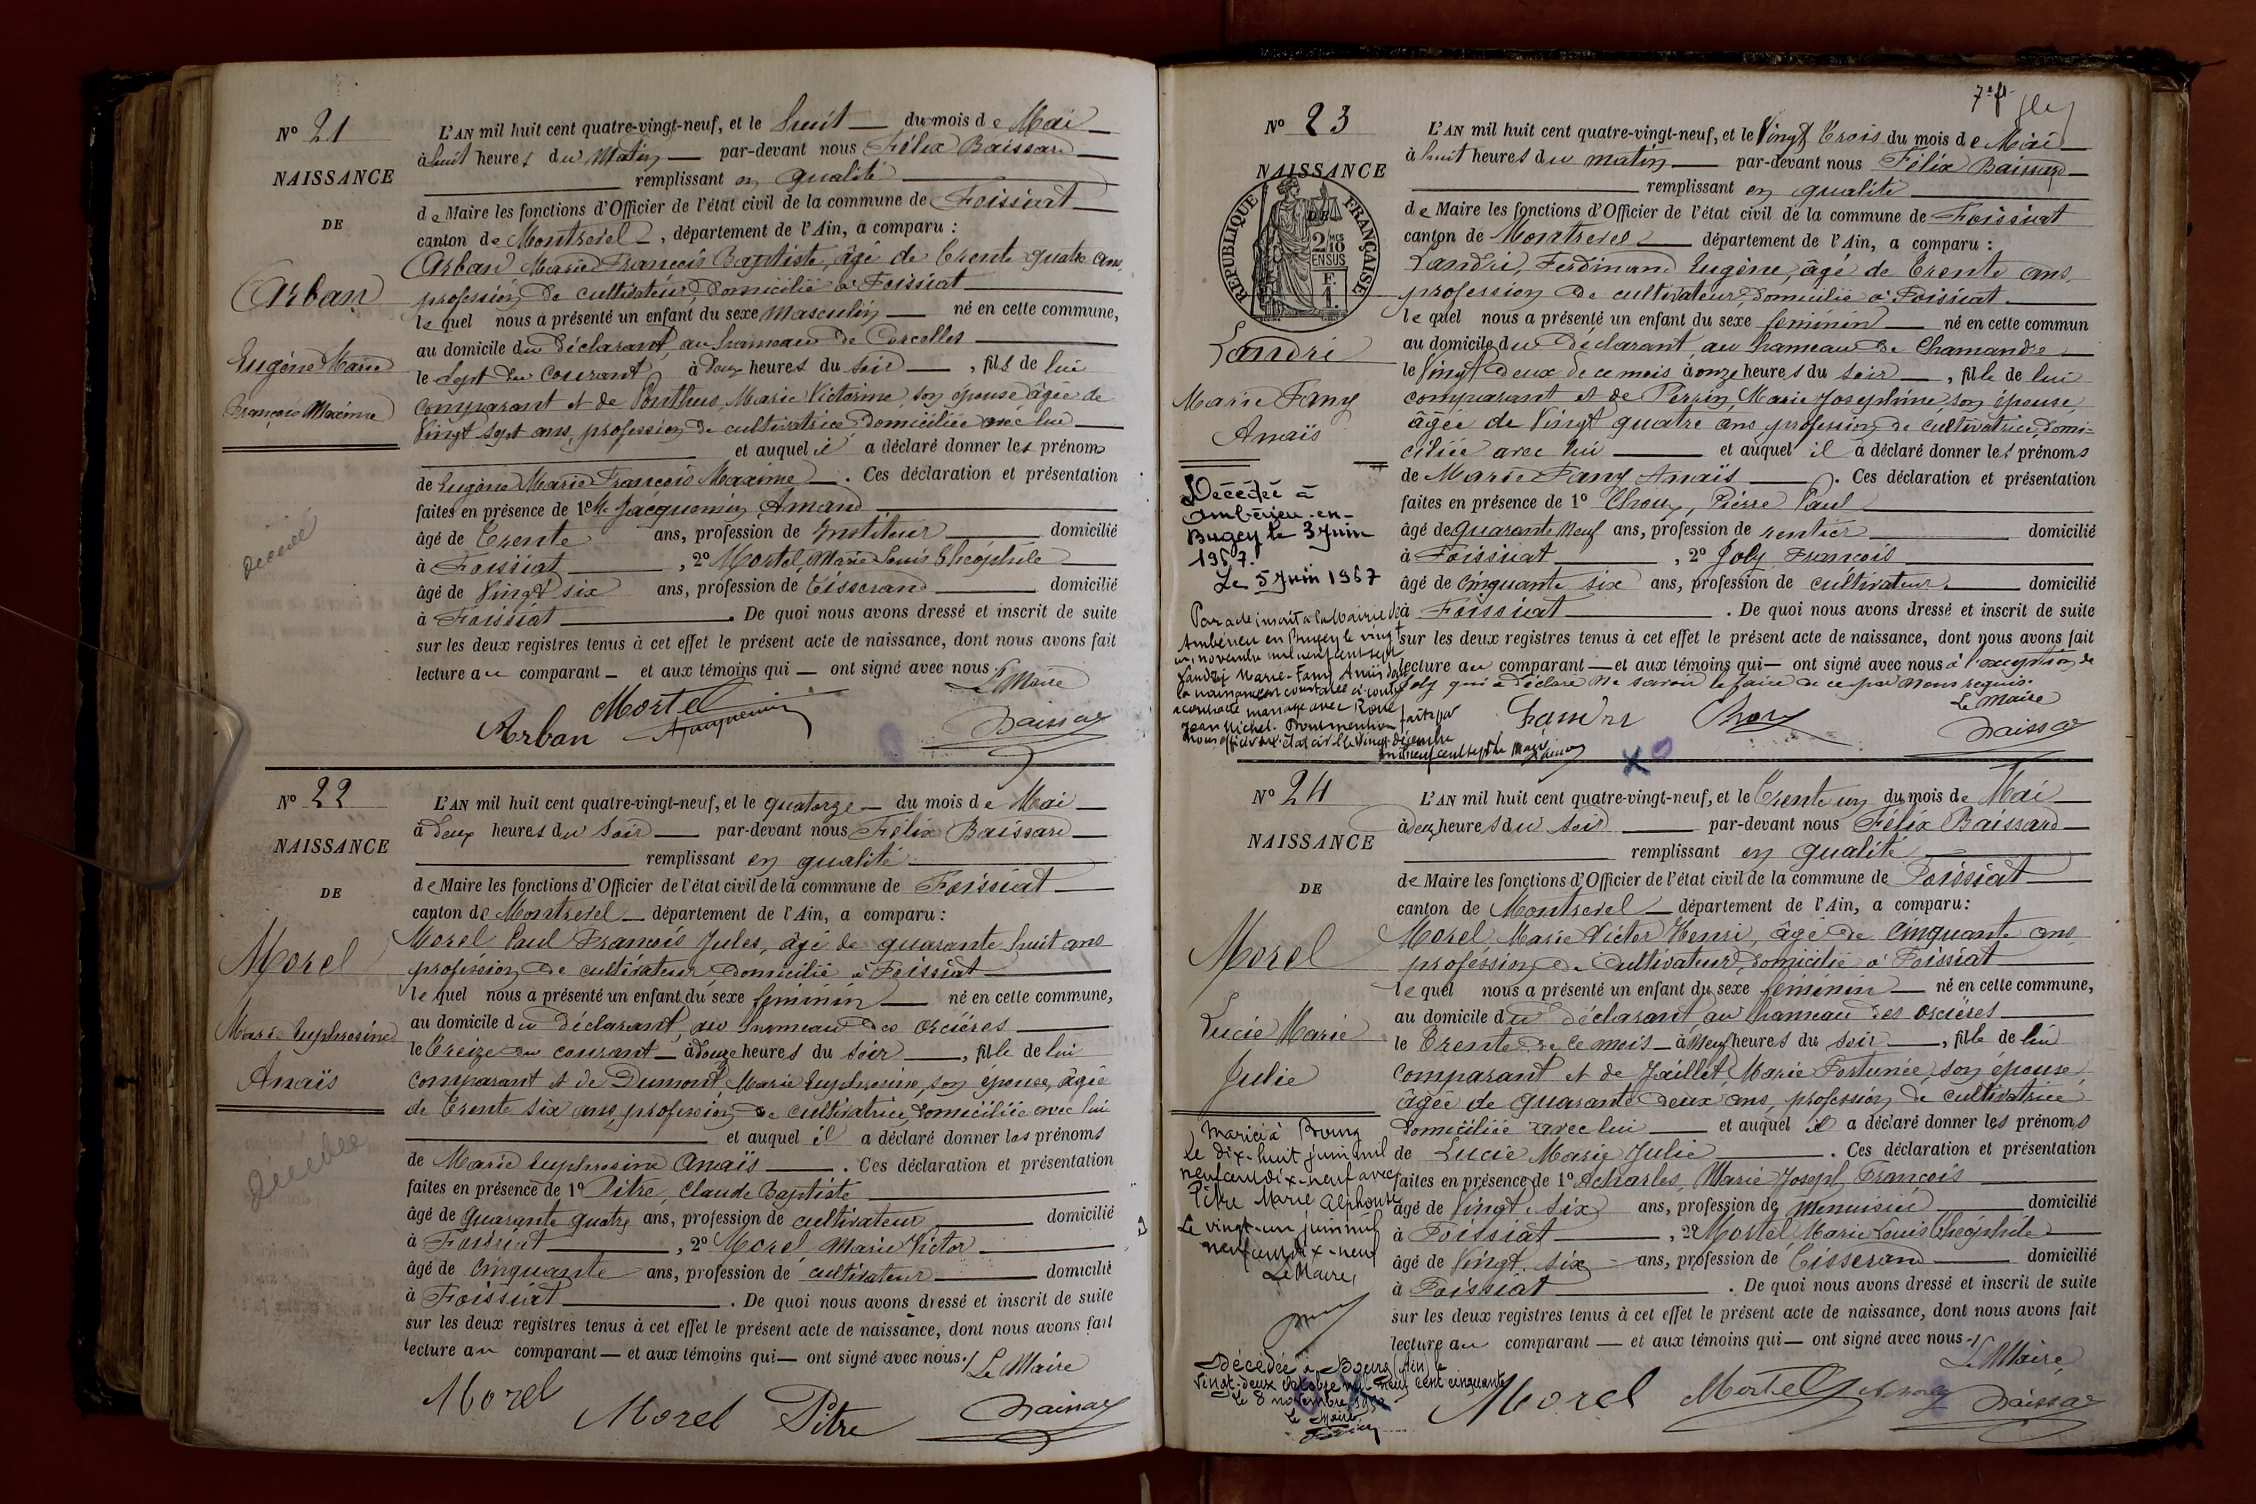 N° 21
NAISSANCE
DE
Arban
Eugène Marie
François Maxime
décédé
L'AN mil huit cent quatre-vingt-neuf, et le huit du mois de Mai
à huit heures du Matin par-devant nous Félix Baissard
remplissant en qualité
de Maire les fonctions d'Officier de l'état civil de la commune de Foissiat
canton de Montrevel, département de l'Ain, a comparu :
Arban Marie François Baptiste, âgé de trente quatre ans,
profession de cultivateur, domicilié à Foissiat
lequel nous a présenté un enfant du sexe masculin né en cette commune,
au domicile du déclarant, au hameau de Corcelles
le sept du courant, à deux heures du soir, fils de lui
comparant et de Ponthus, Marie Victorine, son épouse âgée de
vingt sept ans, profession de cultivatrice domiciliée avec lui
et auquel il a déclaré donner les prénoms
de Eugène Marie François Maxime. Ces déclaration et présentation
faites en présence de 1° Jacquemin, Amand
âgé de trente ans, profession de Instituteur domicilié
à Foissiat, 2° Mortel, Marie Louis Théophile
âgé de vingt six ans, profession de tisserand domicilié
à Foissiat. De quoi nous avons dressé et inscrit de suite
sur les deux registres tenus à cet effet le présent acte de naissance, dont nous avons fait
lecture au comparant et aux témoins qui ont signé avec nous.
Le Maire
Arban Mortel Jacquemin Baissard
N° 22
NAISSANCE
DE
Morel
Marie Euphrosine
Anaïs
Décédée
L'AN mil huit cent quatre-vingt-neuf, et le quatorze du mois de Mai
à deux heures du soir par-devant nous Félix Baissard
remplissant en qualité
de Maire les fonctions d'Officier de l'état civil de la commune de Foissiat
canton de Montrevel département de l'Ain, a comparu :
Morel Paul François Jules, âgé de quarante huit ans
profession de cultivateur domicilié à Foissiat
lequel nous a présenté un enfant du sexe féminin né en cette commune,
au domicile du déclarant, au hameau des orcières
le treize du courant à douze heures du soir, fille de lui
comparant et de Dumont Marie Euphrosine, son épouse, âgée
de trente six ans, profession de cultivatrice, domiciliée avec lui
et auquel il a déclaré donner les prénoms
de Marie Euphrosine Anaïs. Ces déclaration et présentation
faites en présence de 1° Pitre, Claude Baptiste
âgé de quarante quatre ans, profession de cultivateur domicilié
à Foissiat, 2° Morel Marie Victor
âgé de cinquante ans, profession de cultivateur domicilié
à Foissiat. De quoi nous avons dressé et inscrit de suite
sur les deux registres tenus à cet effet le présent acte de naissance, dont nous avons fait
lecture au comparant et aux témoins qui ont signé avec nous.
Le Maire
Morel Morel Pitre Baissard
N° 23
NAISSANCE
DE
RÉPUBLIQUE FRANÇAISE
2/10 MES
EN SUS
F.
1.
Landri
Marie Fany
Anaïs
Décédée à
Ambérieu-en-
Bugey le 3 Juin
1967.
Le 5 Juin 1967
Par acte inscrit à la Mairie de
Ambérieu en Bugey le vingt
un novembre mil neuf cent sept
Landri Marie-Fany Anaïs dont
la naissance est constatée ci-contre
a contracté mariage avec
Jean Michel. Dont mention faite par
nous officier de l'état civil le vingt décembre
mil neuf cent sept Le Maire
L'AN mil huit cent quatre-vingt-neuf, et le vingt trois du mois de Mai
à huit heures du matin par-devant nous Félix Baissard
remplissant en qualité
de Maire les fonctions d'Officier de l'état civil de la commune de Foissiat
canton de Montrevel département de l'Ain, a comparu :
Landri, Ferdinand Eugène, âgé de trente ans,
profession de cultivateur, domicilié à Foissiat
lequel nous a présenté un enfant du sexe féminin né en cette commun
au domicile du déclarant, au hameau de Chamandre
le vingt deux de ce mois à onze heures du soir, fille de lui
comparant et de Perrin, Marie Josephine, son épouse,
âgée de vingt quatre ans, profession de cultivatrice, domi-
ciliée avec lui et auquel il a déclaré donner les prénoms
de Marie Fany Anaïs. Ces déclaration et présentation
faites en présence de 1° Pierre Paul
âgé de quarante neuf ans, profession de rentier domicilié
à Foissiat, 2° Joly François
âgé de cinquante six ans, profession de cultivateur domicilié
à Foissiat. De quoi nous avons dressé et inscrit de suite
sur les deux registres tenus à cet effet le présent acte de naissance, dont nous avons fait
lecture au comparant et aux témoins qui ont signé avec nous à l'exception de
Joly qui a déclaré ne savoir le faire de ce par nous requis.
Le Maire
Landri Baissard
N° 24
NAISSANCE
DE
Morel
Lucie Marie
Julie
Mariée à Bourg
le dix-huit juin mil
neuf cent dix-neuf avec
Pitre Marie Alphonse
Le vingt-un juin mil
neuf cent dix-neuf
Le Maire,
Décédée à Bourg (Ain) le
vingt-deux octobre mil neuf cent cinquante
Le 8 novembre 1950
Le Maire
L'AN mil huit cent quatre-vingt-neuf, et le trente un du mois de Mai
à deux heures du soir par-devant nous Félix Baissard
remplissant en qualité
de Maire les fonctions d'Officier de l'état civil de la commune de Foissiat
canton de Montrevel département de l'Ain, a comparu :
Morel, Marie Victor Henri, âgé de cinquante ans,
profession de cultivateur, domicilié à Foissiat
lequel nous a présenté un enfant du sexe féminin né en cette commune,
au domicile du déclarant, au hameau des orcières
le trente de ce mois à neuf heures du soir, fille de lui
comparant et de Jaillet Marie Fortunée, son épouse,
âgée de quarante deux ans, profession de cultivatrice
domiciliée avec lui et auquel il a déclaré donner les prénoms
de Lucie Marie Julie. Ces déclaration et présentation
faites en présence de 1° Marie Joseph François
âgé de vingt six ans, profession de menuisier domicilié
à Foissiat, 2° Mortel Marie Louis Théophile
âgé de vingt six ans, profession de tisserand domicilié
à Foissiat. De quoi nous avons dressé et inscrit de suite
sur les deux registres tenus à cet effet le présent acte de naissance, dont nous avons fait
lecture au comparant et aux témoins qui ont signé avec nous.
Le Maire
Morel Mortel Baissard